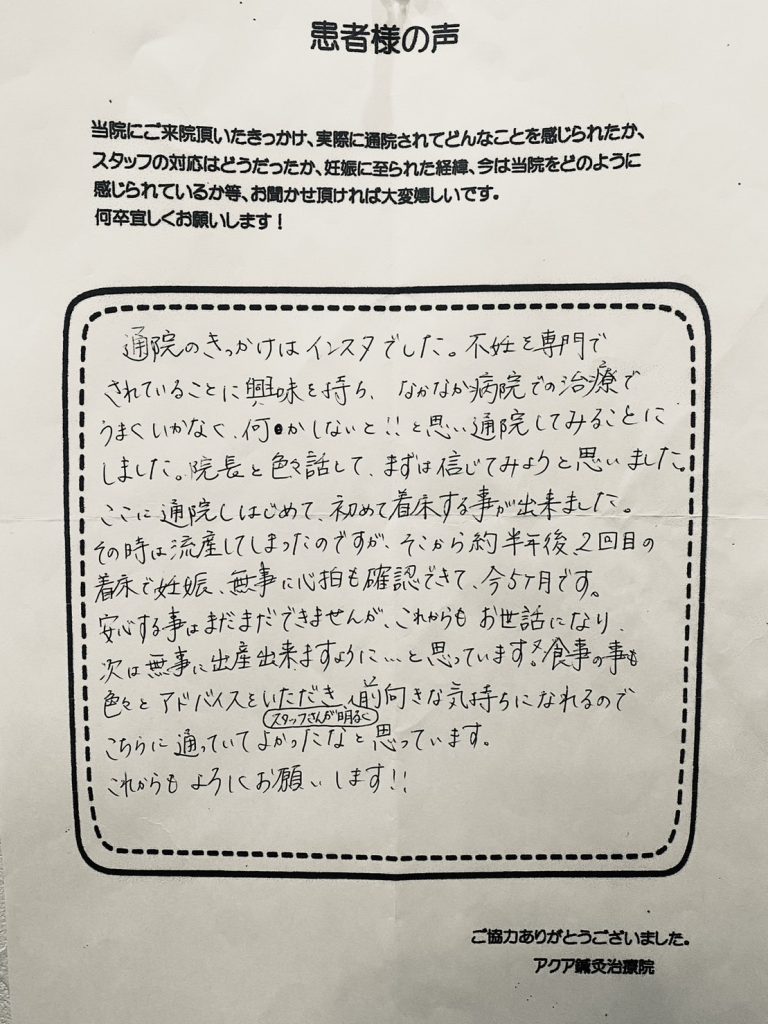 患者様の声
当院にご来院頂いたきっかけ、実際に通院されてどんなことを感じられたか、
スタッフの対応はどうだったか、妊娠に至られた経緯、今は当院をどのように
感じられているか等、お聞かせ頂ければ大変嬉しいです。
何卒宜しくお願いします！
通院のきっかけはインスタでした。不妊を専門で
されていることに興味を持ち、なかなか病院での治療で
うまくいかなく、何かしないと!!と思い通院してみることに
しました。院長と色々話して、まずは信じてみようと思いました。
ここに通院しはじめて、初めて着床する事が出来ました。
その時は流産してしまったのですが、そこから約半年後、2回目の
着床で妊娠、無事に心拍も確認できて、今5ヶ月です。
安心する事はまだまだできませんが、これからもお世話になり、
次は無事に出産出来ますように…と思っています。食事の事も
色々とアドバイスをいただき、前向きな気持ちになれるので
スタッフさんが明るく
こちらに通っていてよかったなと思っています。
これからもよろしくお願いします!!
ご協力ありがとうございました。
アクア鍼灸治療院